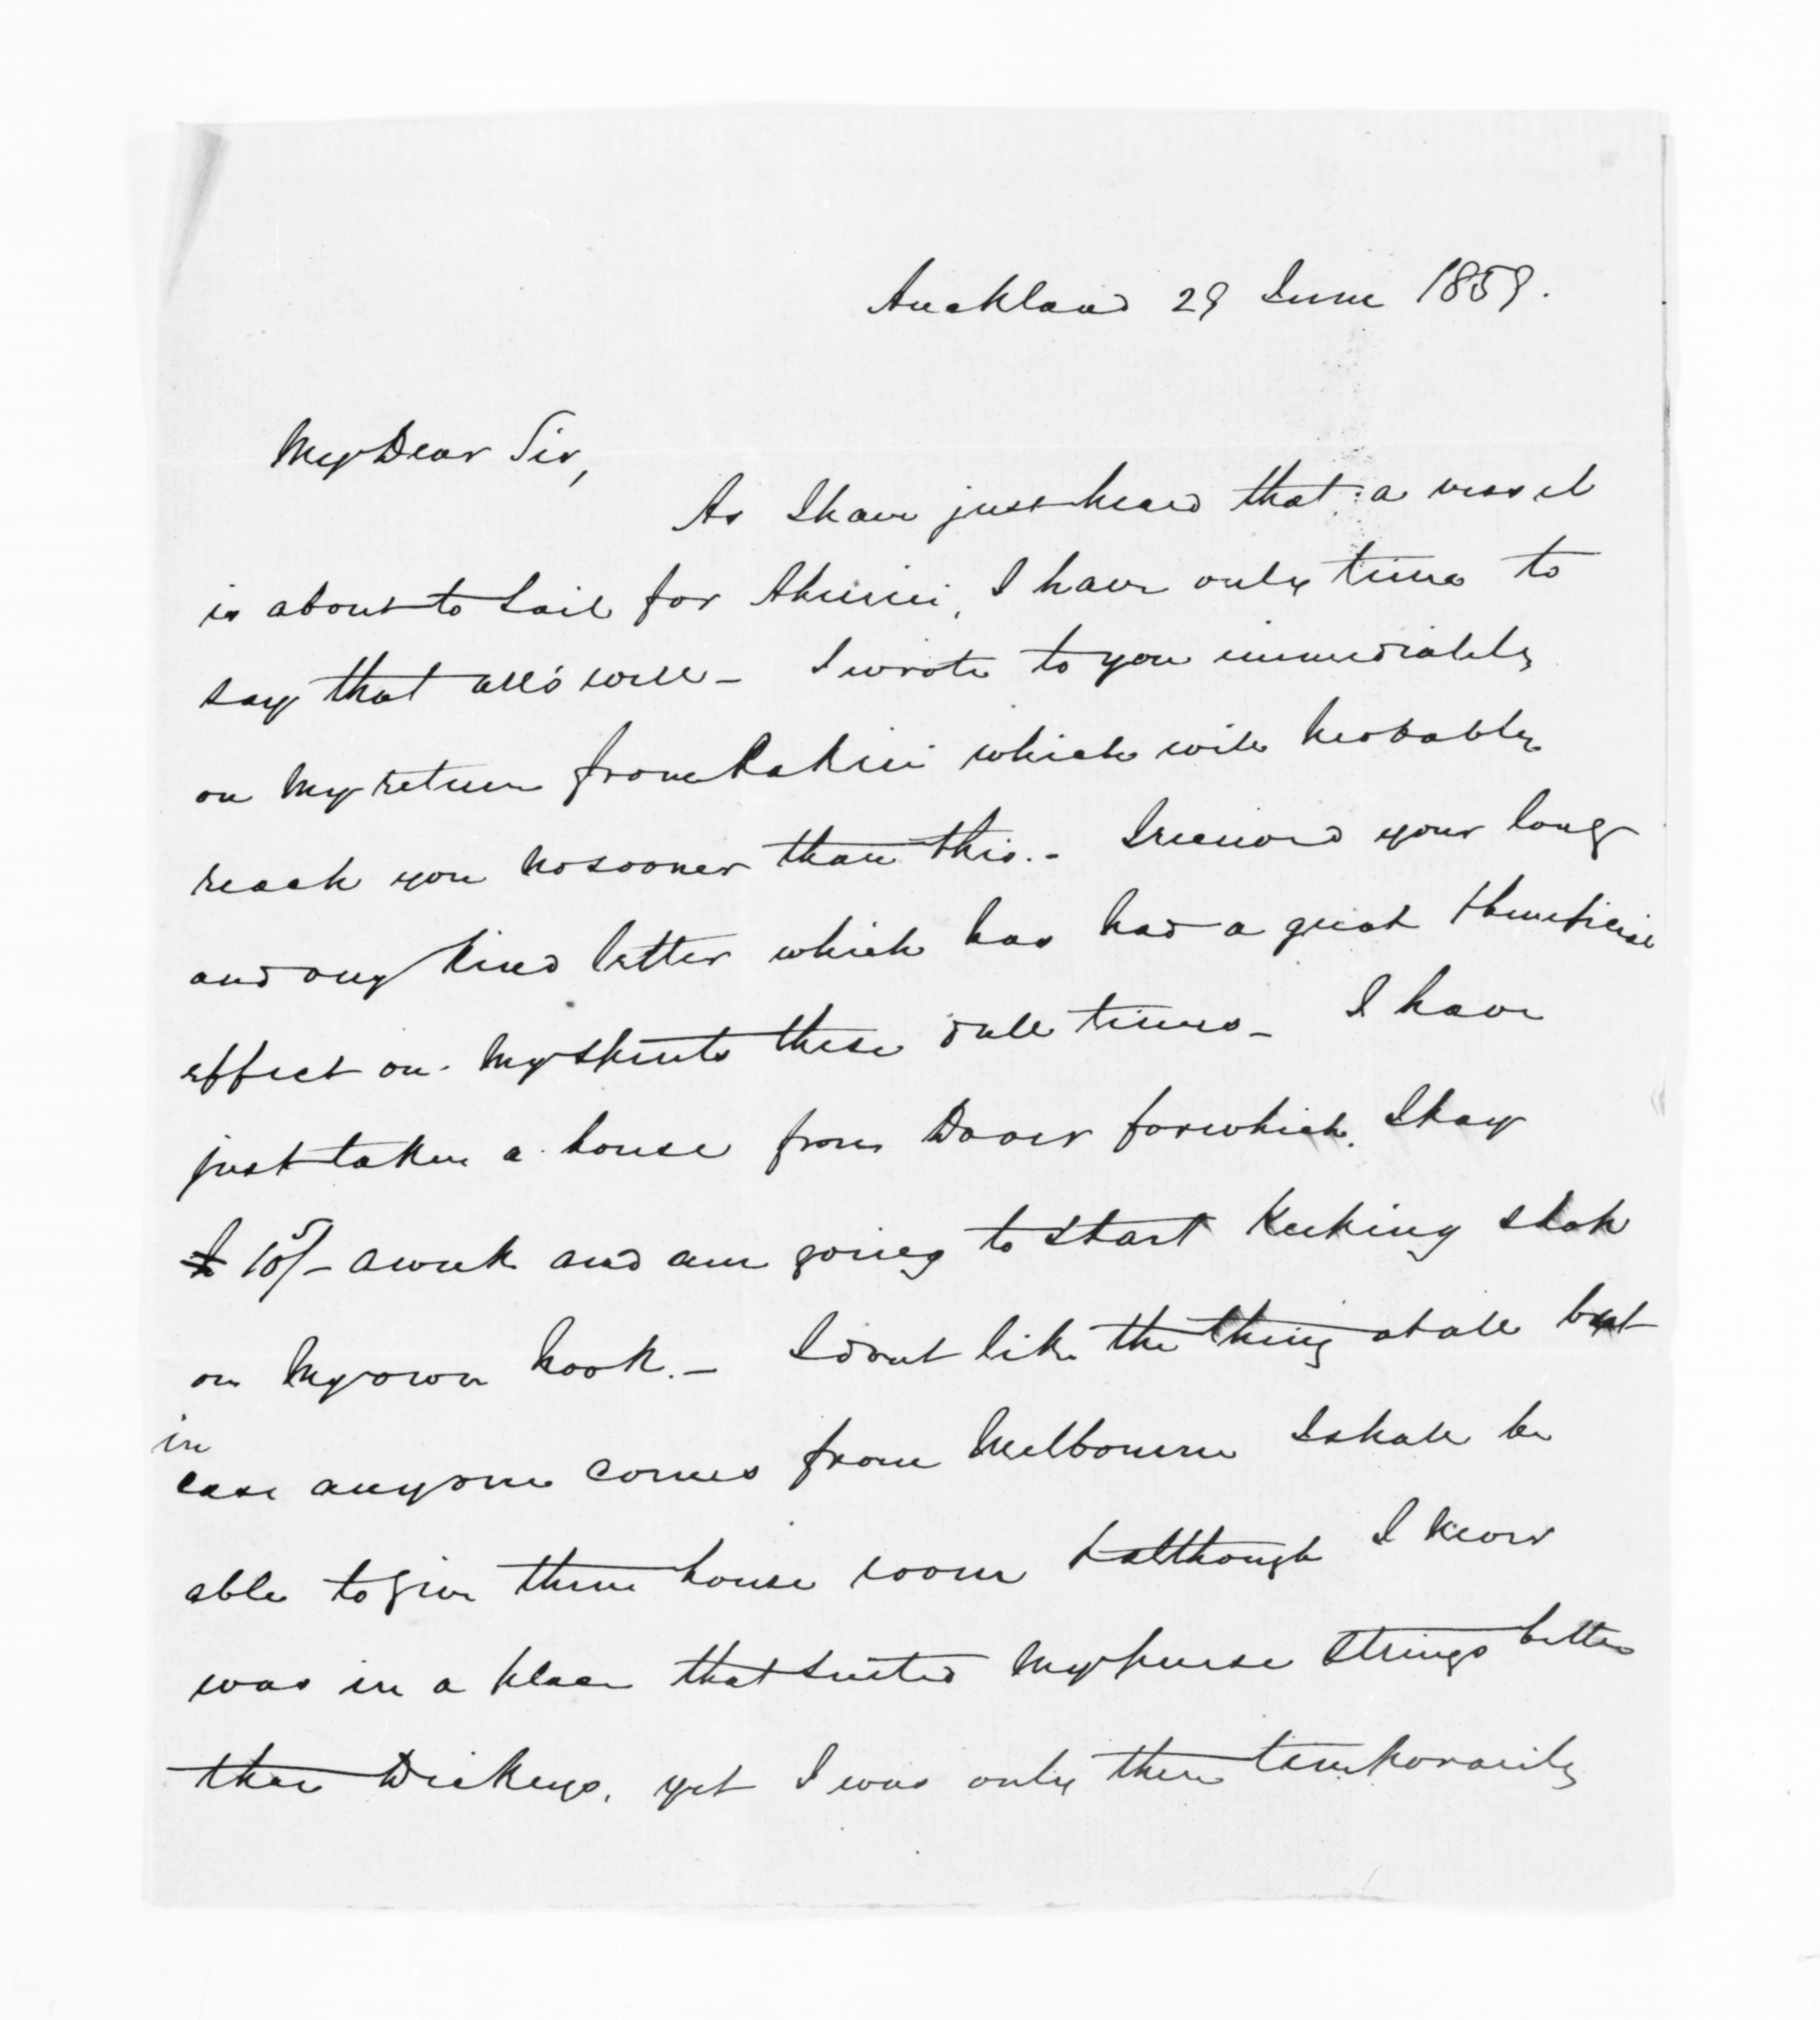 Auckland 29 June 1859.
My Dear Sir,
As I have just heard that a vessel
is about to sail for Ahuriri, I have only time to
say that all's well - I wrote to you immediately
on my return from which will probably
reach you no sooner than this. - I received your long
and very kind letter which has had a great & beneficial
effect on my spirits these dull times - I have
just taken a house from for which I pay
15/- a week and am going to start keeping shop
on my own hook. - I dont like the thing at all but
in
case anyone comes from Melbourne I shall be
able to give them house room & although I know
was in a place that suited my purse strings better
than Dickeys, yet I was only there temporarily